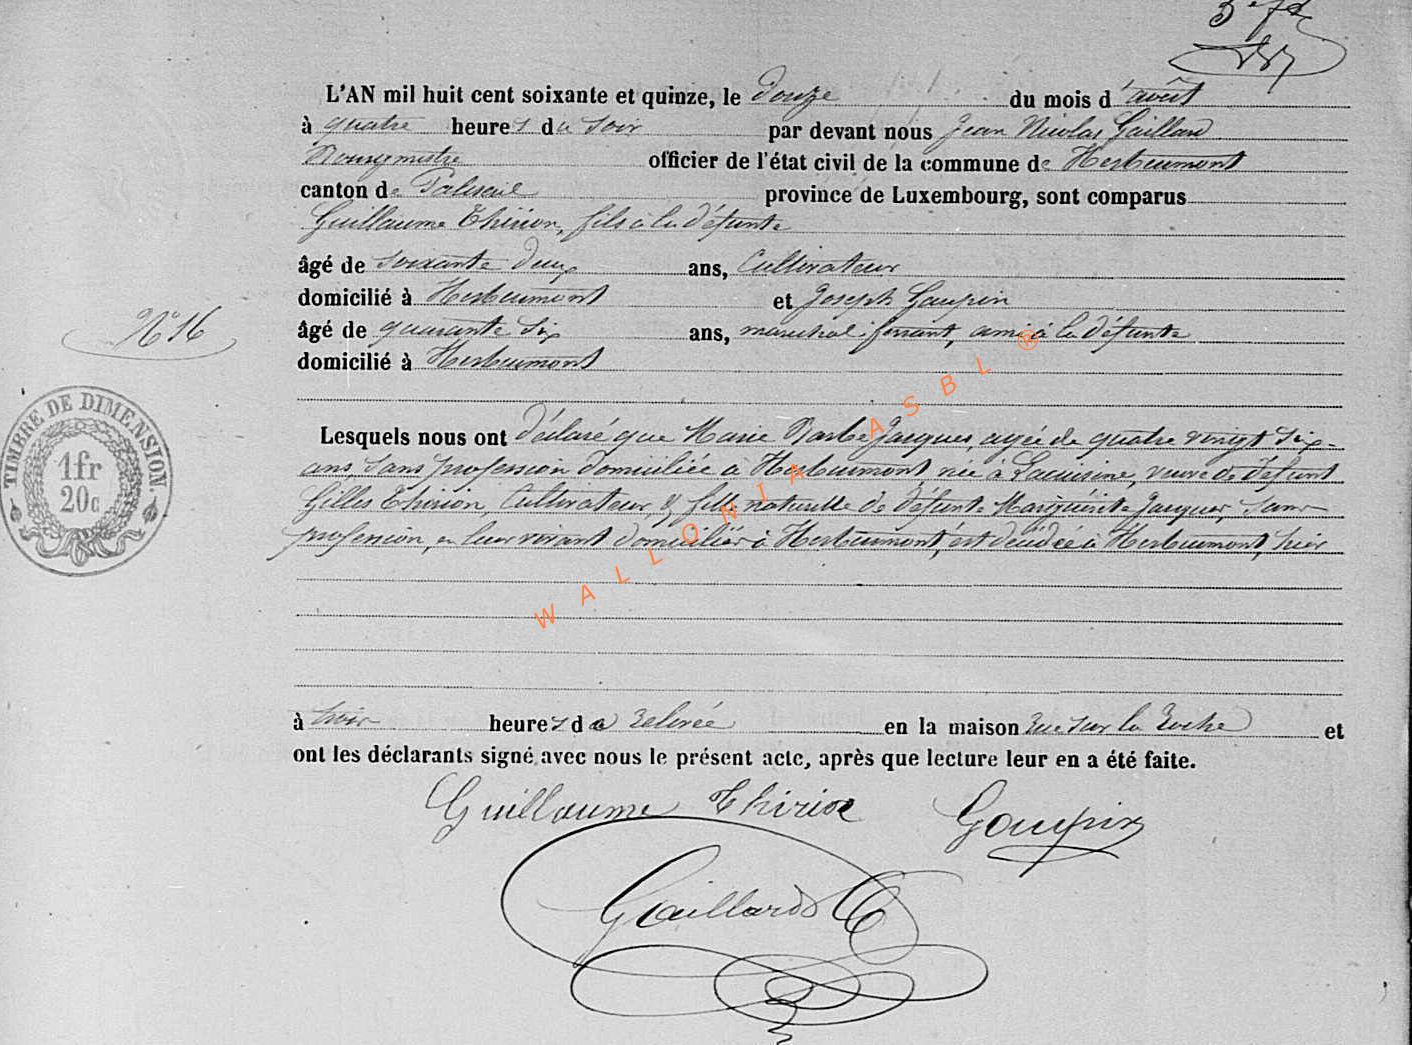 L'AN mil huit cent soixante et quinze, le douze du mois d'août
à quatre heures du soir par devant nous Jean Nicolas Gaillard
Bourgmestre officier de l'état civil de la commune de Herbeumont
canton de Paliseul province de Luxembourg, sont comparus
Guillaume Thirion, fils à la défunte
âgé de soixante deux ans, Cultivateur
domicilié à Herbeumont et Joseph Goupin
N° 16
âgé de quarante six ans, maréchal ferrant, ami à la défunte
domicilié à Herbeumont
TIMBRE DE DIMENSION.
1fr
20c
Lesquels nous ont déclaré que Marie Barbe Jacques, agée de quatre vingt six
ans, sans profession domiciliée à Herbeumont, née à Lacuisine, veuve de défunt
Gilles Thirion, Cultivateur, & fille naturelle de défunte Marguerite Jacques, sans
profession, en leur vivant domiciliés à Herbeumont, est décédée à Herbeumont, hier
à trois heures de relevée en la maison rue sur la Roche et
ont les déclarants signé avec nous le présent acte, après que lecture leur en a été faite.
Guillaume Thirion Goupin
Gaillard
WALLONIA ASBL ®